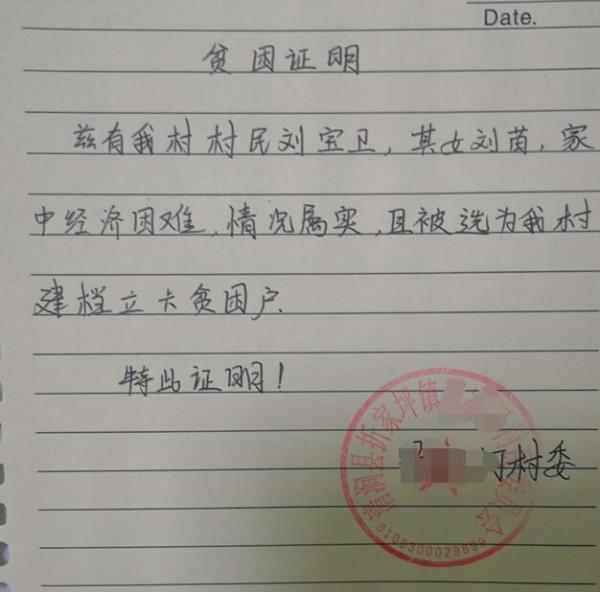 Date.
贫困证明
兹有我村村民刘宝卫，其女刘苗，家
中经济困难，情况属实，且被选为我村
建档立卡贫困户.
特此证明！
清涧县折家坪镇
门村委